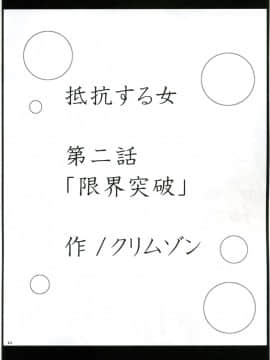 抵抗する女
第二話
「限界突破」
作/クリムゾン